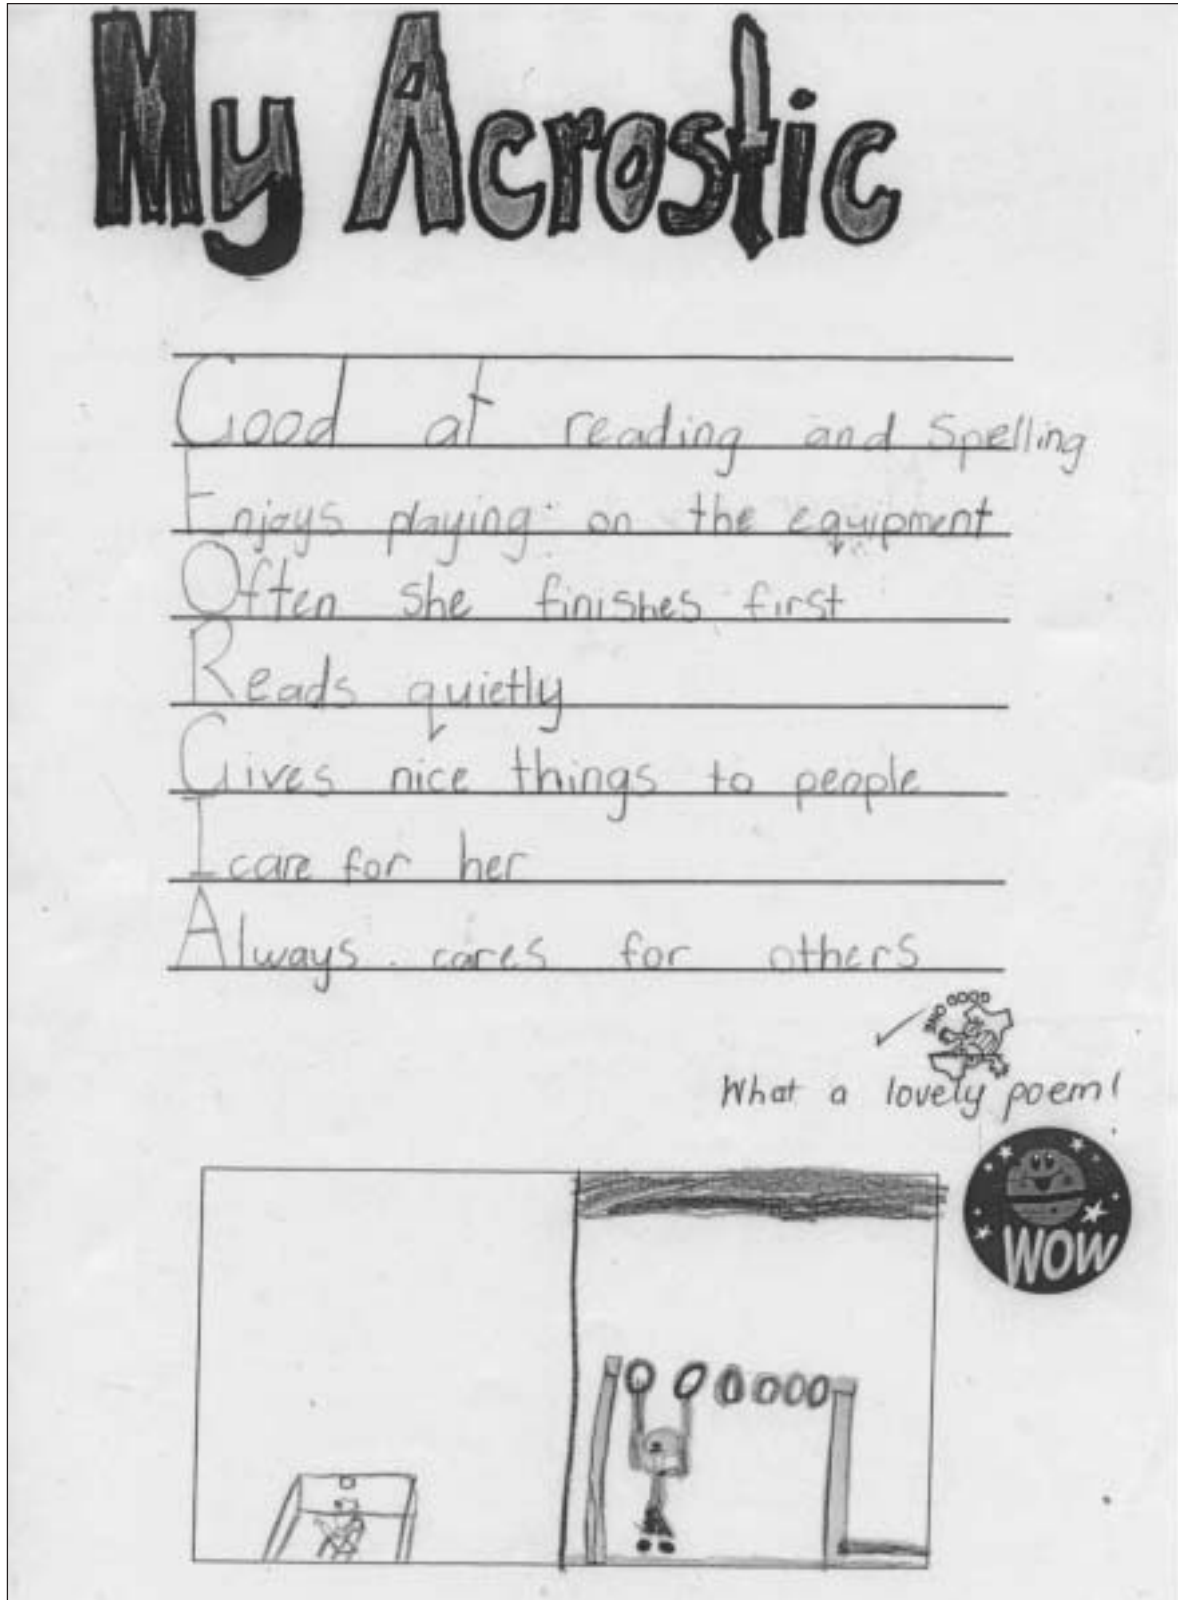 My Acrostic
Good at reading and Spelling
Enjoys playing on the equipment
Often she finishes first
Reads quietly
Gives nice things to people
I care for her
Always cares for others
GOOD ONE
What a lovely poem!
WOW